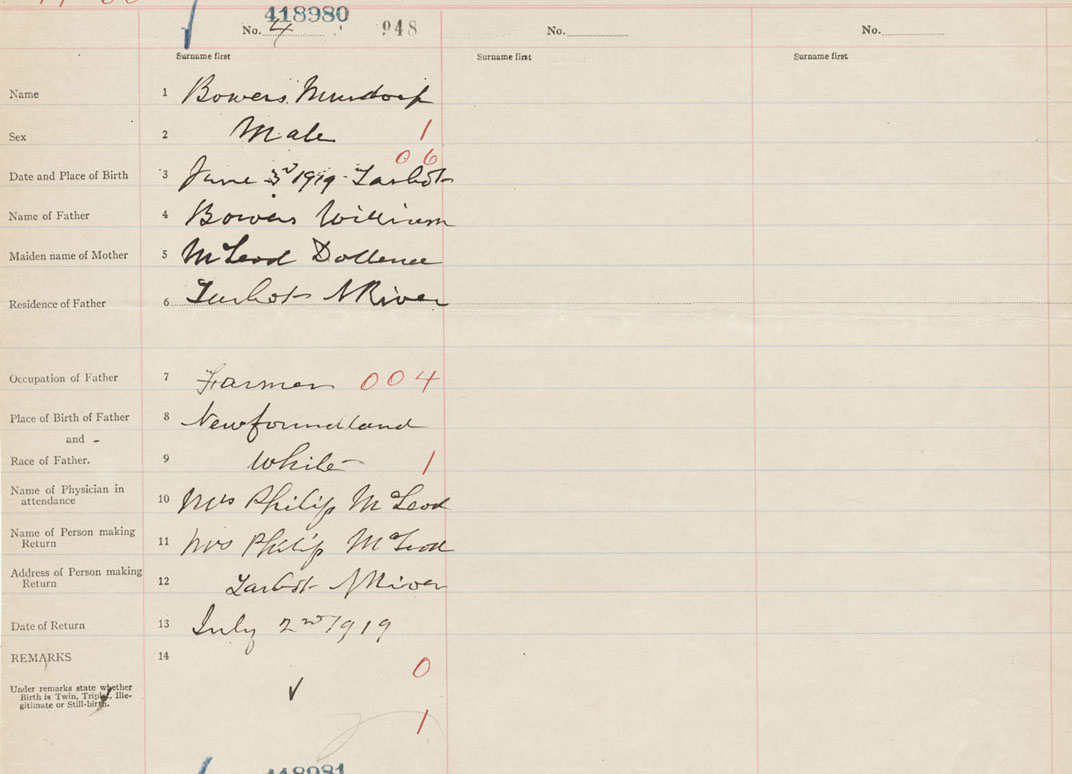 418980
No. 4 948 No. No.
Surname first Surname first Surname first
Name 1 Bowers Murdock
Sex 2 Male 1
0 6
Date and Place of Birth 3 June 3rd 1919 - Tarbot
Name of Father 4 Bowers William
Maiden name of Mother 5 McLeod Dollena
Residence of Father 6 Tarbot N River
Occupation of Father 7 Farmer 004
Place of Birth of Father 8 Newfoundland
and -
Race of Father. 9 White 1
Name of Physician in
attendance 10 Mrs Philip McLeod
Name of Person making
Return 11 Mrs Philip McLeod
Address of Person making
Return 12 Tarbot N River
Date of Return 13 July 2nd 1919
REMARKS 14
0
Under remarks state whether
Birth is Twin, Triplet, Ille-
gitimate or Still-birth.
1
418981